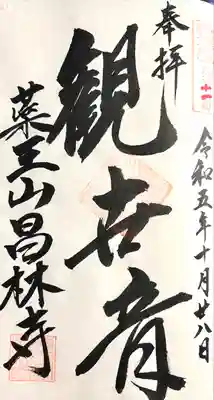 奉拝
令和五年十月廿八日
観世音
薬王山昌林寺